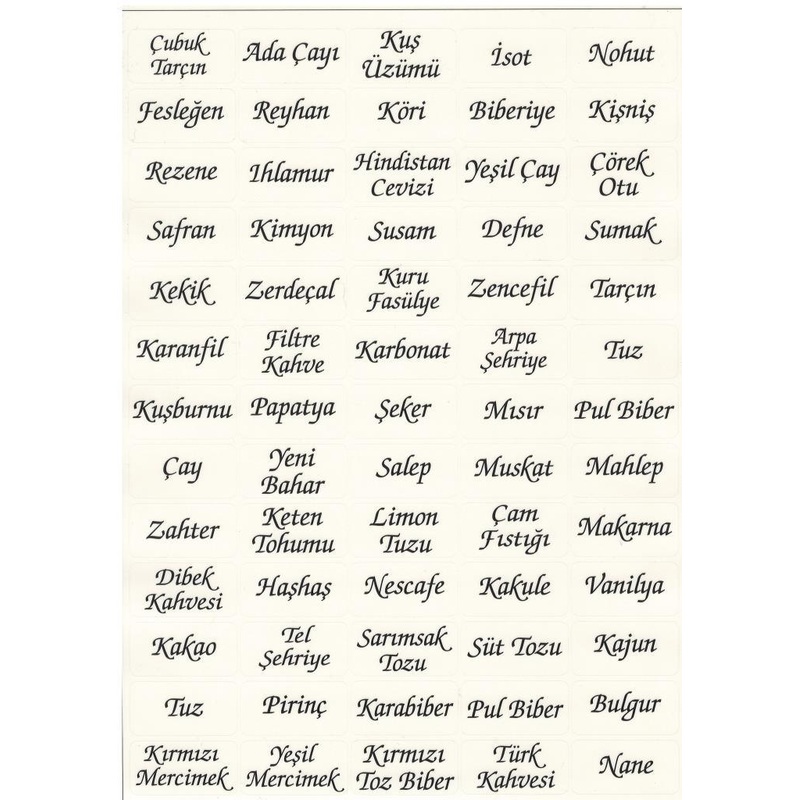 Çubuk Tarçın
Ada Çayı
Kuş Üzümü
İsot
Nohut
Fesleğen
Reyhan
Köri
Biberiye
Kişniş
Rezene
Ihlamur
Hindistan Cevizi
Yeşil Çay
Çörek Otu
Safran
Kimyon
Susam
Defne
Sumak
Kekik
Zerdeçal
Kuru Fasülye
Zencefil
Tarçın
Karanfil
Filtre Kahve
Karbonat
Arpa Şehriye
Tuz
Kuşburnu
Papatya
Şeker
Mısır
Pul Biber
Çay
Yeni Bahar
Salep
Muskat
Mahlep
Zahter
Keten Tohumu
Limon Tuzu
Çam Fıstığı
Makarna
Dibek Kahvesi
Haşhaş
Nescafe
Kakule
Vanilya
Kakao
Tel Şehriye
Sarımsak Tozu
Süt Tozu
Kajun
Tuz
Pirinç
Karabiber
Pul Biber
Bulgur
Kırmızı Mercimek
Yeşil Mercimek
Kırmızı Toz Biber
Türk Kahvesi
Nane